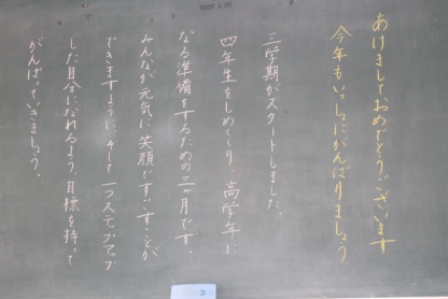 あけましておめでとうございます
今年もいっしょにがんばりましょう
三学期がスタートしました。
四年生をしめくくり、高学年に
なる準備をするための三ヶ月です。
みんなが元気に笑顔ですごすことが
できますように、そして一つステップアップ
した自分になれるよう、目標を持って
がんばっていきましょう。